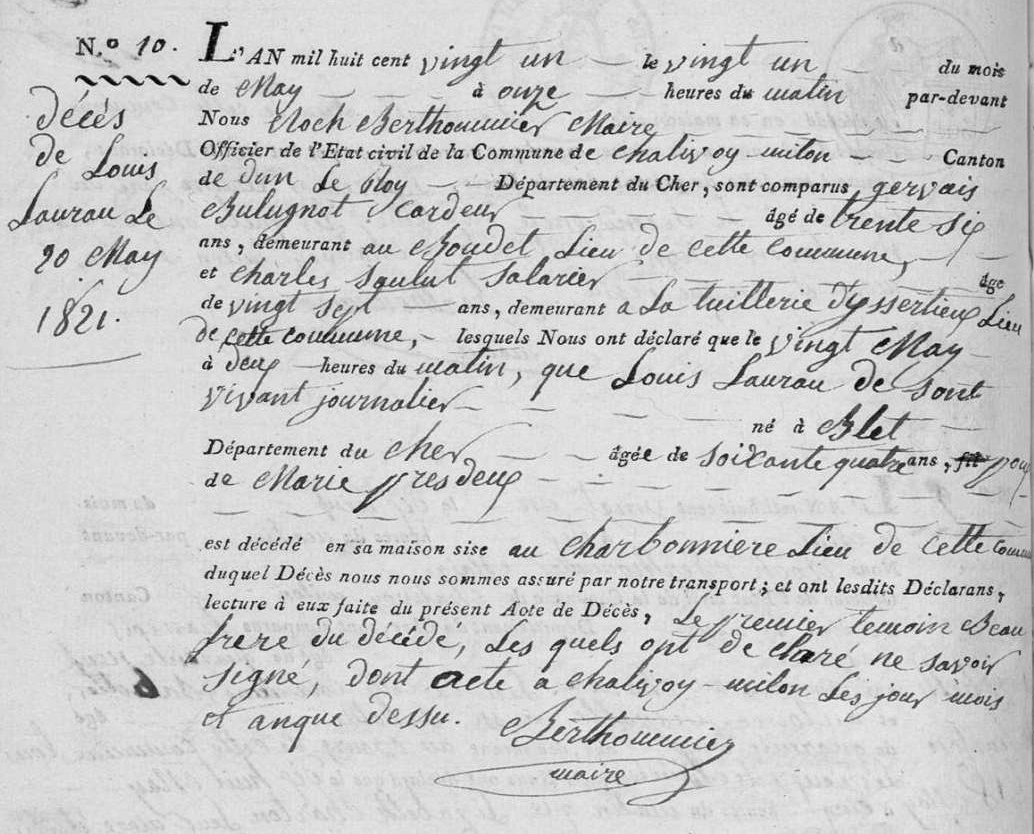 N.º 10.
décès
de Louis
Laurau Le
20 May
1821.
L'AN mil huit cent vingt un le vingt un du mois
de May à onze heures du matin par-devant
Nous Roch Berthommier Maire
Officier de l'Etat civil de la Commune de chalivoy milon Canton
de dun Le Roy Département du Cher, sont comparus gervais
Bulugnot Cardeur âgé de trente six
ans, demeurant au Boudet Lieu de cette commune,
et charles Saulut Salarier âgé
de vingt sept ans, demeurant a La tuillerie d'yssertieux Lieu
de cette commune, lesquels Nous ont déclaré que le vingt May
à deux heures du matin, que Louis Laurau de sont
vivant journalier
né à Blet
Département du cher âgée de soixante quatre ans, fil
de Marie presdeux
est décédé en sa maison sise au charbonniere Lieu de cette
duquel Décès nous nous sommes assuré par notre transport; et ont lesdits Déclarans,
lecture à eux faite du présent Acte de Décès, Le premier temoin Beau
frere du décédé, Les quels ont de claré ne savoir
signé, dont acte a chalivoy-milon Les jour mois
et anque dessu.
Berthommier
maire